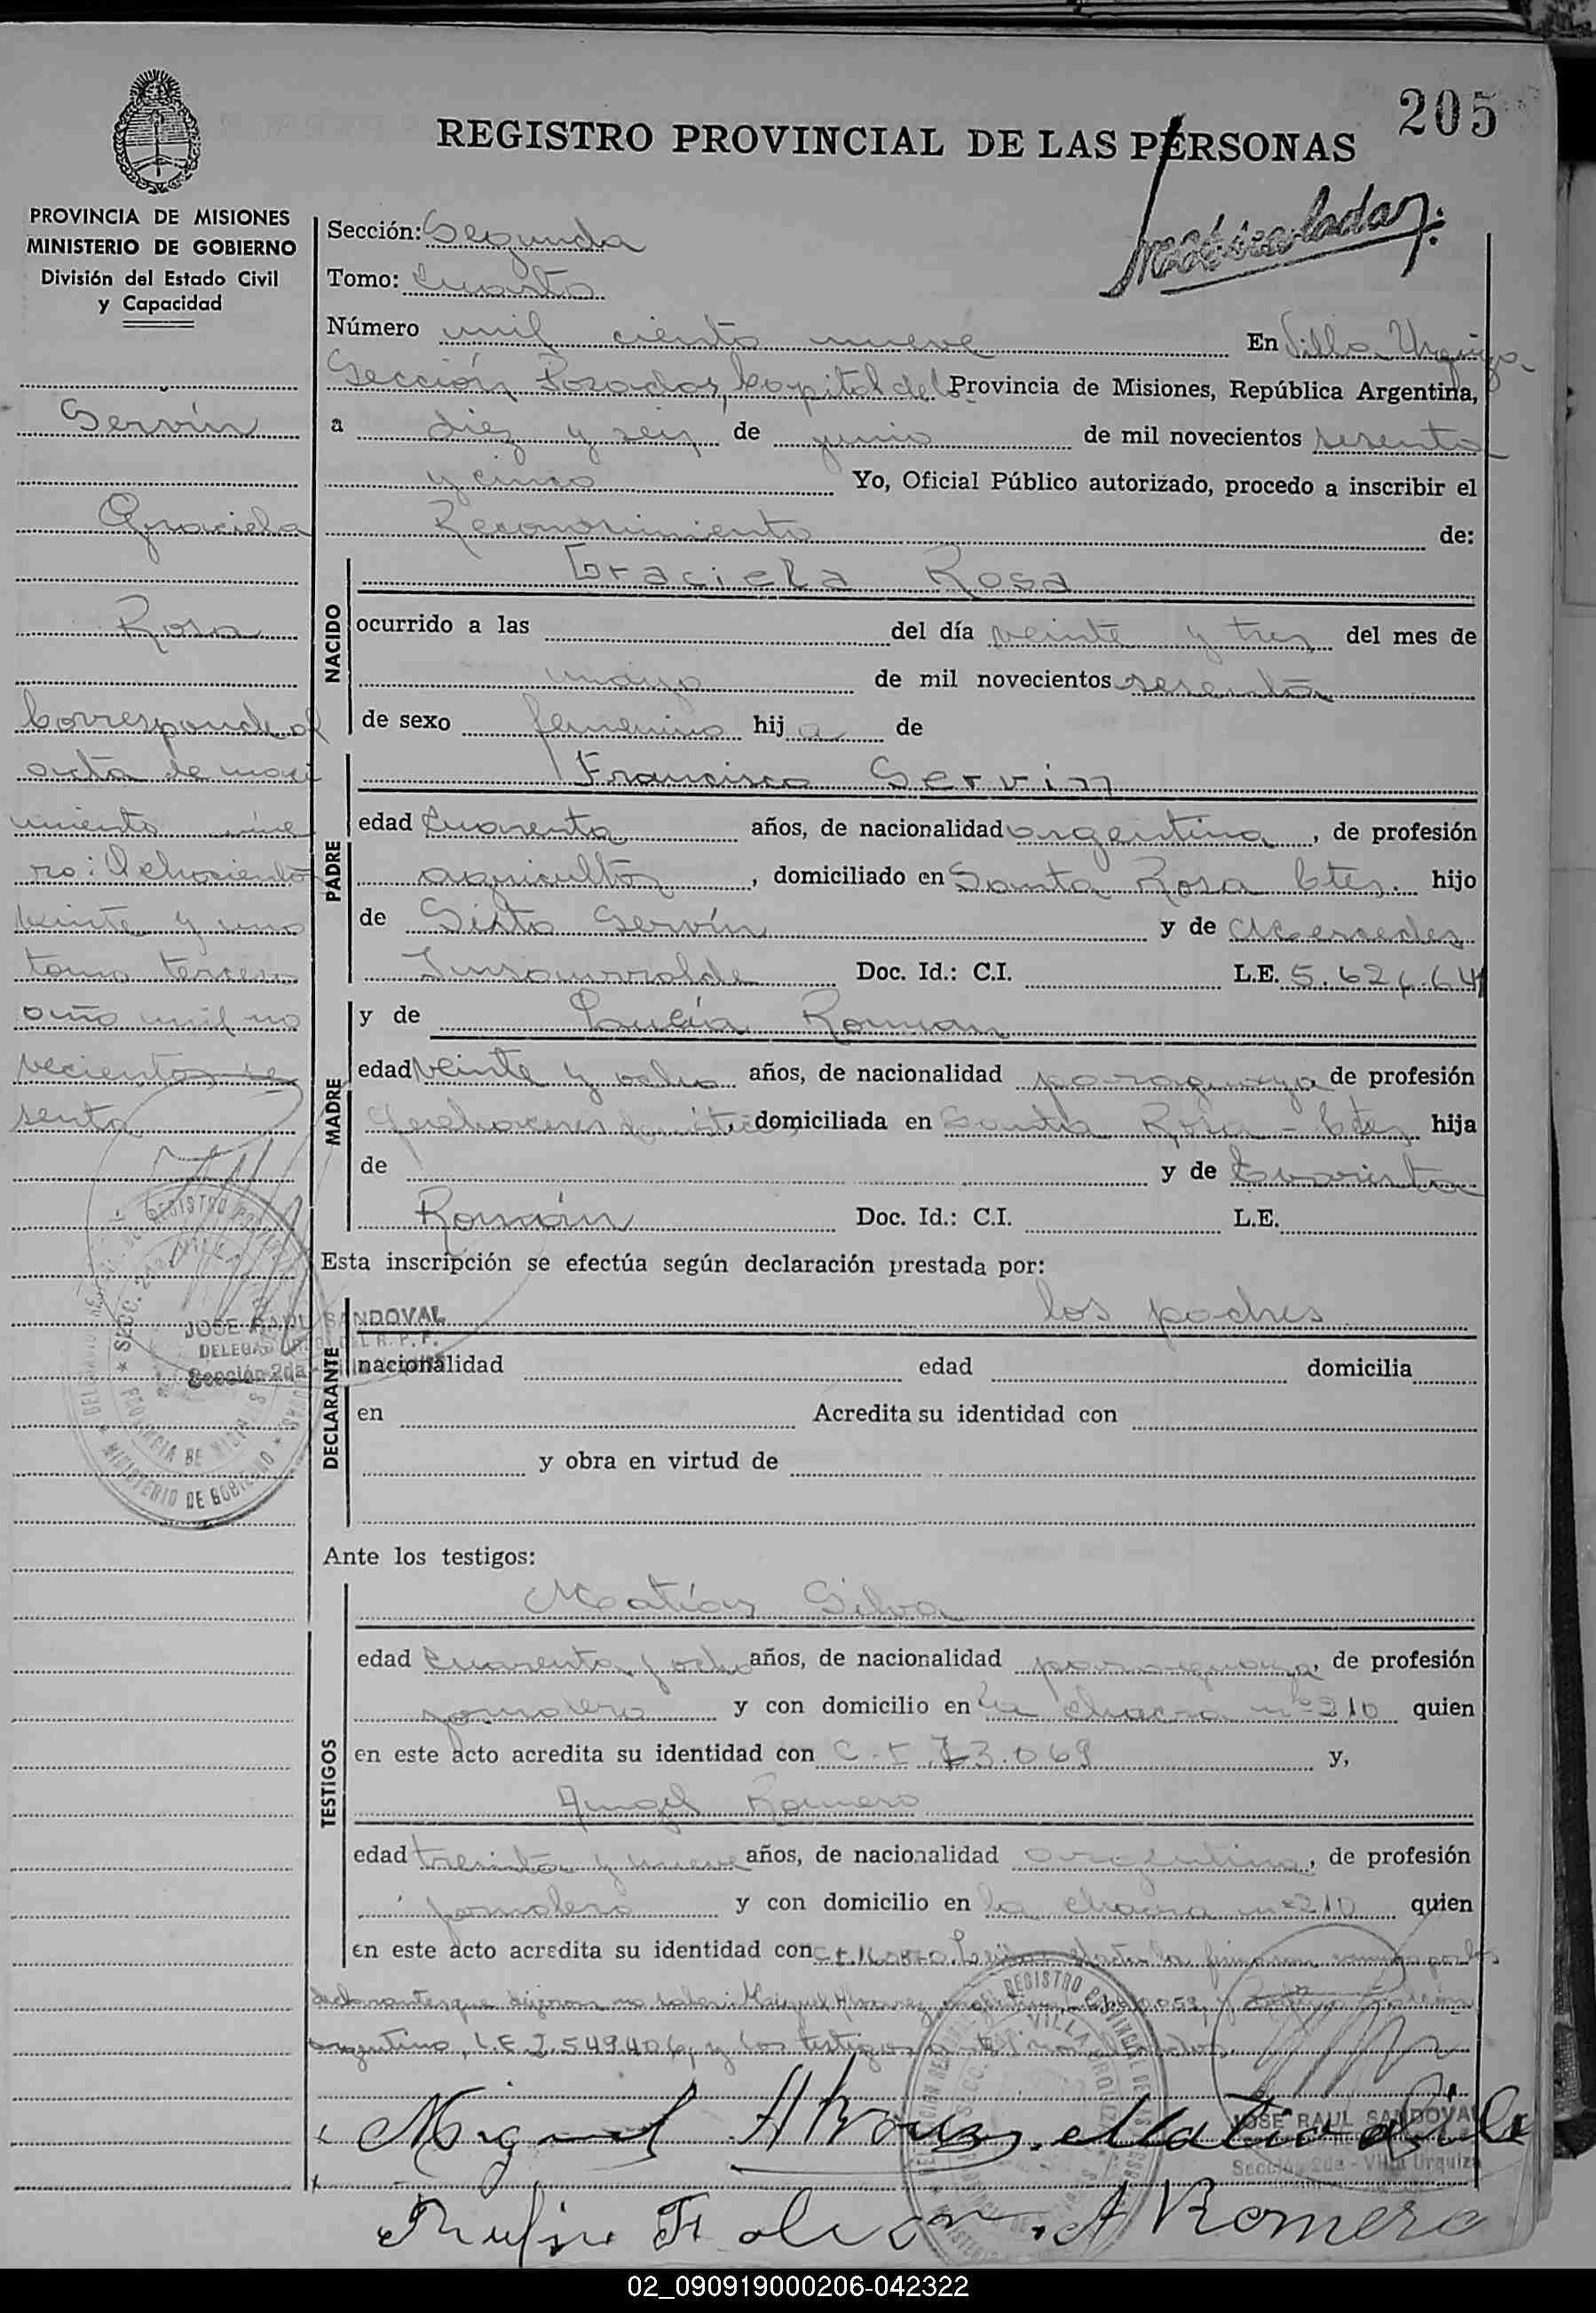 205
REGISTRO PROVINCIAL DE LAS PERSONAS
Matriculada
PROVINCIA DE MISIONES
MINISTERIO DE GOBIERNO
División del Estado Civil
y Capacidad
Servín
Graciela
Rosa
Corresponde al
acta de naci
miento núme
ro: Ochociento
veinte y uno
tomo tercero
año mil no
vecientos se
senta
JOSE RAUL SANDOVAL
Sección 2da
Sección: Segunda
Tomo: Cuarto
Número mil ciento nueve En Villa Urquiza
Sección Posadas, Capital de Provincia de Misiones, República Argentina,
a diez y seis de junio de mil novecientos sesenta
y cinco Yo, Oficial Público autorizado, procedo a inscribir el
Reconocimiento de:
NACIDO
Graciela Rosa
ocurrido a las del día veinte y tres del mes de
mayo de mil novecientos sesenta
de sexo femenino hija de
PADRE
Francisco Servin
edad cuarenta años, de nacionalidad argentina, de profesión
agricultor, domiciliado en Santa Rosa Ctes. hijo
de Sixto Servín y de Mercedes
Insaurralde Doc. Id.: C.I. L.E. 5.624.64
MADRE
y de Lucía Roman
edad veinte y ocho años, de nacionalidad paraguaya de profesión
quehaceres domésticos, domiciliada en Santa Rosa - Ctes hija
de y de Evarista
Román Doc. Id.: C.I. L.E.
Esta inscripción se efectúa según declaración prestada por:
DECLARANTE
los padres
nacionalidad edad domicilia
en Acredita su identidad con
y obra en virtud de
Ante los testigos:
TESTIGOS
Matías Silva
edad cuarenta y ocho años, de nacionalidad paraguaya, de profesión
jornalero y con domicilio en la chacra nº 210 quien
en este acto acredita su identidad con C.I. 73.069 y,
Angel Romero
edad treinta y nueve años, de nacionalidad argentina, de profesión
jornalero y con domicilio en la chacra nº 210 quien
en este acto acredita su identidad con C.I. Leída el acta la firman conmigo por los
declarantes que dijeron no saber: Miguel Alvarez,
argentino, L.E. 2.549.406, y los testigos
Miguel Alvarez. Matia Silva
JOSE RAUL SANDOVAL
Sección 2da - Villa Urquiza
Rufino Falcon. A Romero
02_090919000206-042322